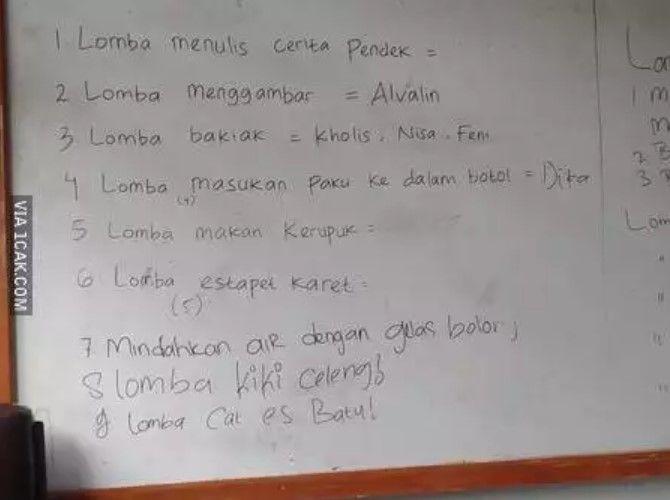 1 Lomba menulis cerita Pendek =
2 Lomba menggambar = Alvalin
3 Lomba bakiak = Kholis, Nisa, Feni
4 Lomba masukan paku ke dalam botol = Dita
(4)
5 Lomba makan Kerupuk =
6 Lomba estapet karet =
(5)
7 Mindahkan aiR dengan gelas bolor,
8 lomba kiki celengb
9 lomba Cat es Batu!
Lom
1 m
m
2 B
3
Lom
VIA 1CAK.COM